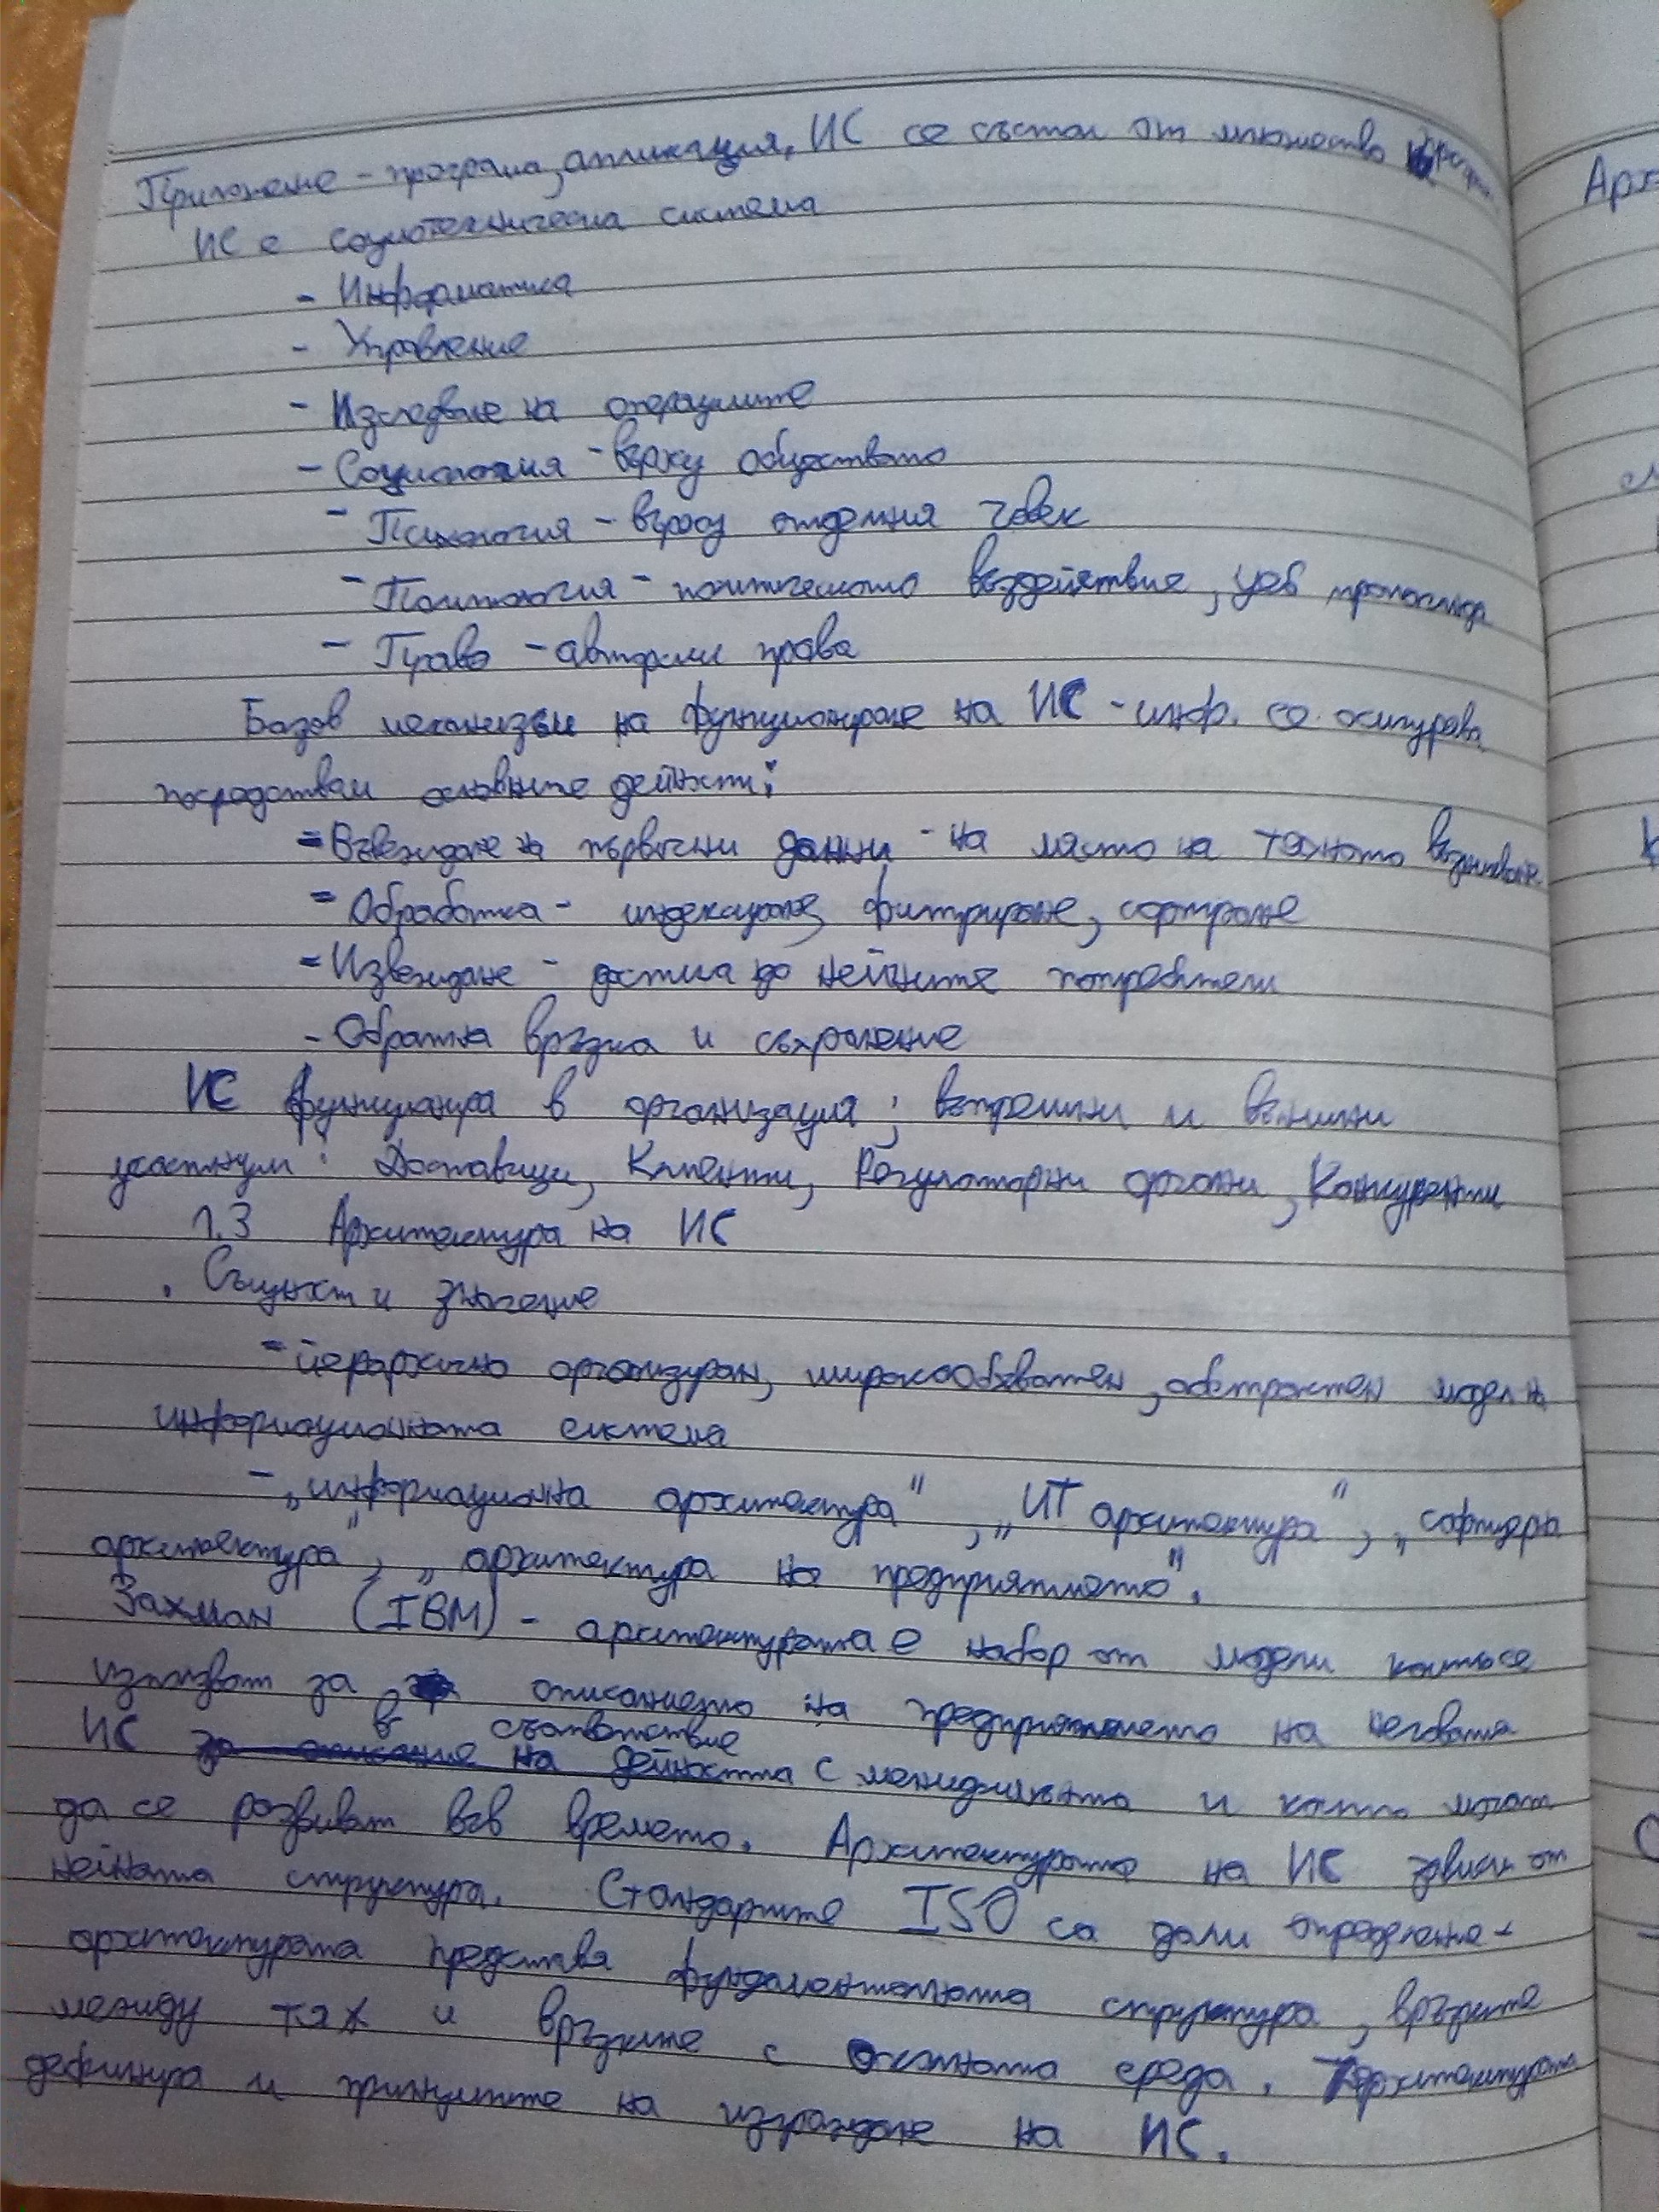 Приложение - програма, апликация, ИС се състои от множество програми
ИС е социотехническа система
- Информатика
- Управление
- Изследване на операциите
- Социология - върху обществото
- Психология - върху отделния човек
- Политология - политическото въздействие, уеб
- Право - авторски права
Базов механизъм на функциониране на ИС - инф. се осигурява
посредством основните дейности:
- Въвеждане на първични данни - на място на тяхното възникване
- Обработка - индексиране, филтриране, сортиране
- Извеждане - достига до нейните потребители
- Обратна връзка и съхранение
ИС функционира в организация; вътрешни и външни
участници: Доставчици, Клиенти, Регулаторни органи, Конкуренти
1.3 Архитектура на ИС
. Същност и значение
- йерархично организиран, широкообхватен, абстрактен модел на
информационната система
- „информационна архитектура", „ИТ архитектура", „софтуерна
архитектура", „архитектура на предприятието".
Захман (IBM) - архитектурата е набор от модели които се
използват за описанието на предприятието на неговата
ИС в съответствие с мениджмънта и които могат
да се развиват във времето. Архитектурата на ИС зависи от
нейната структура. Стандартите ISO са дали определение -
архитектурата представя фундаменталната структура, връзките
между тях и връзките с околната среда. Архитектурата
дефинира и принципите на изграждане на ИС.
Арх